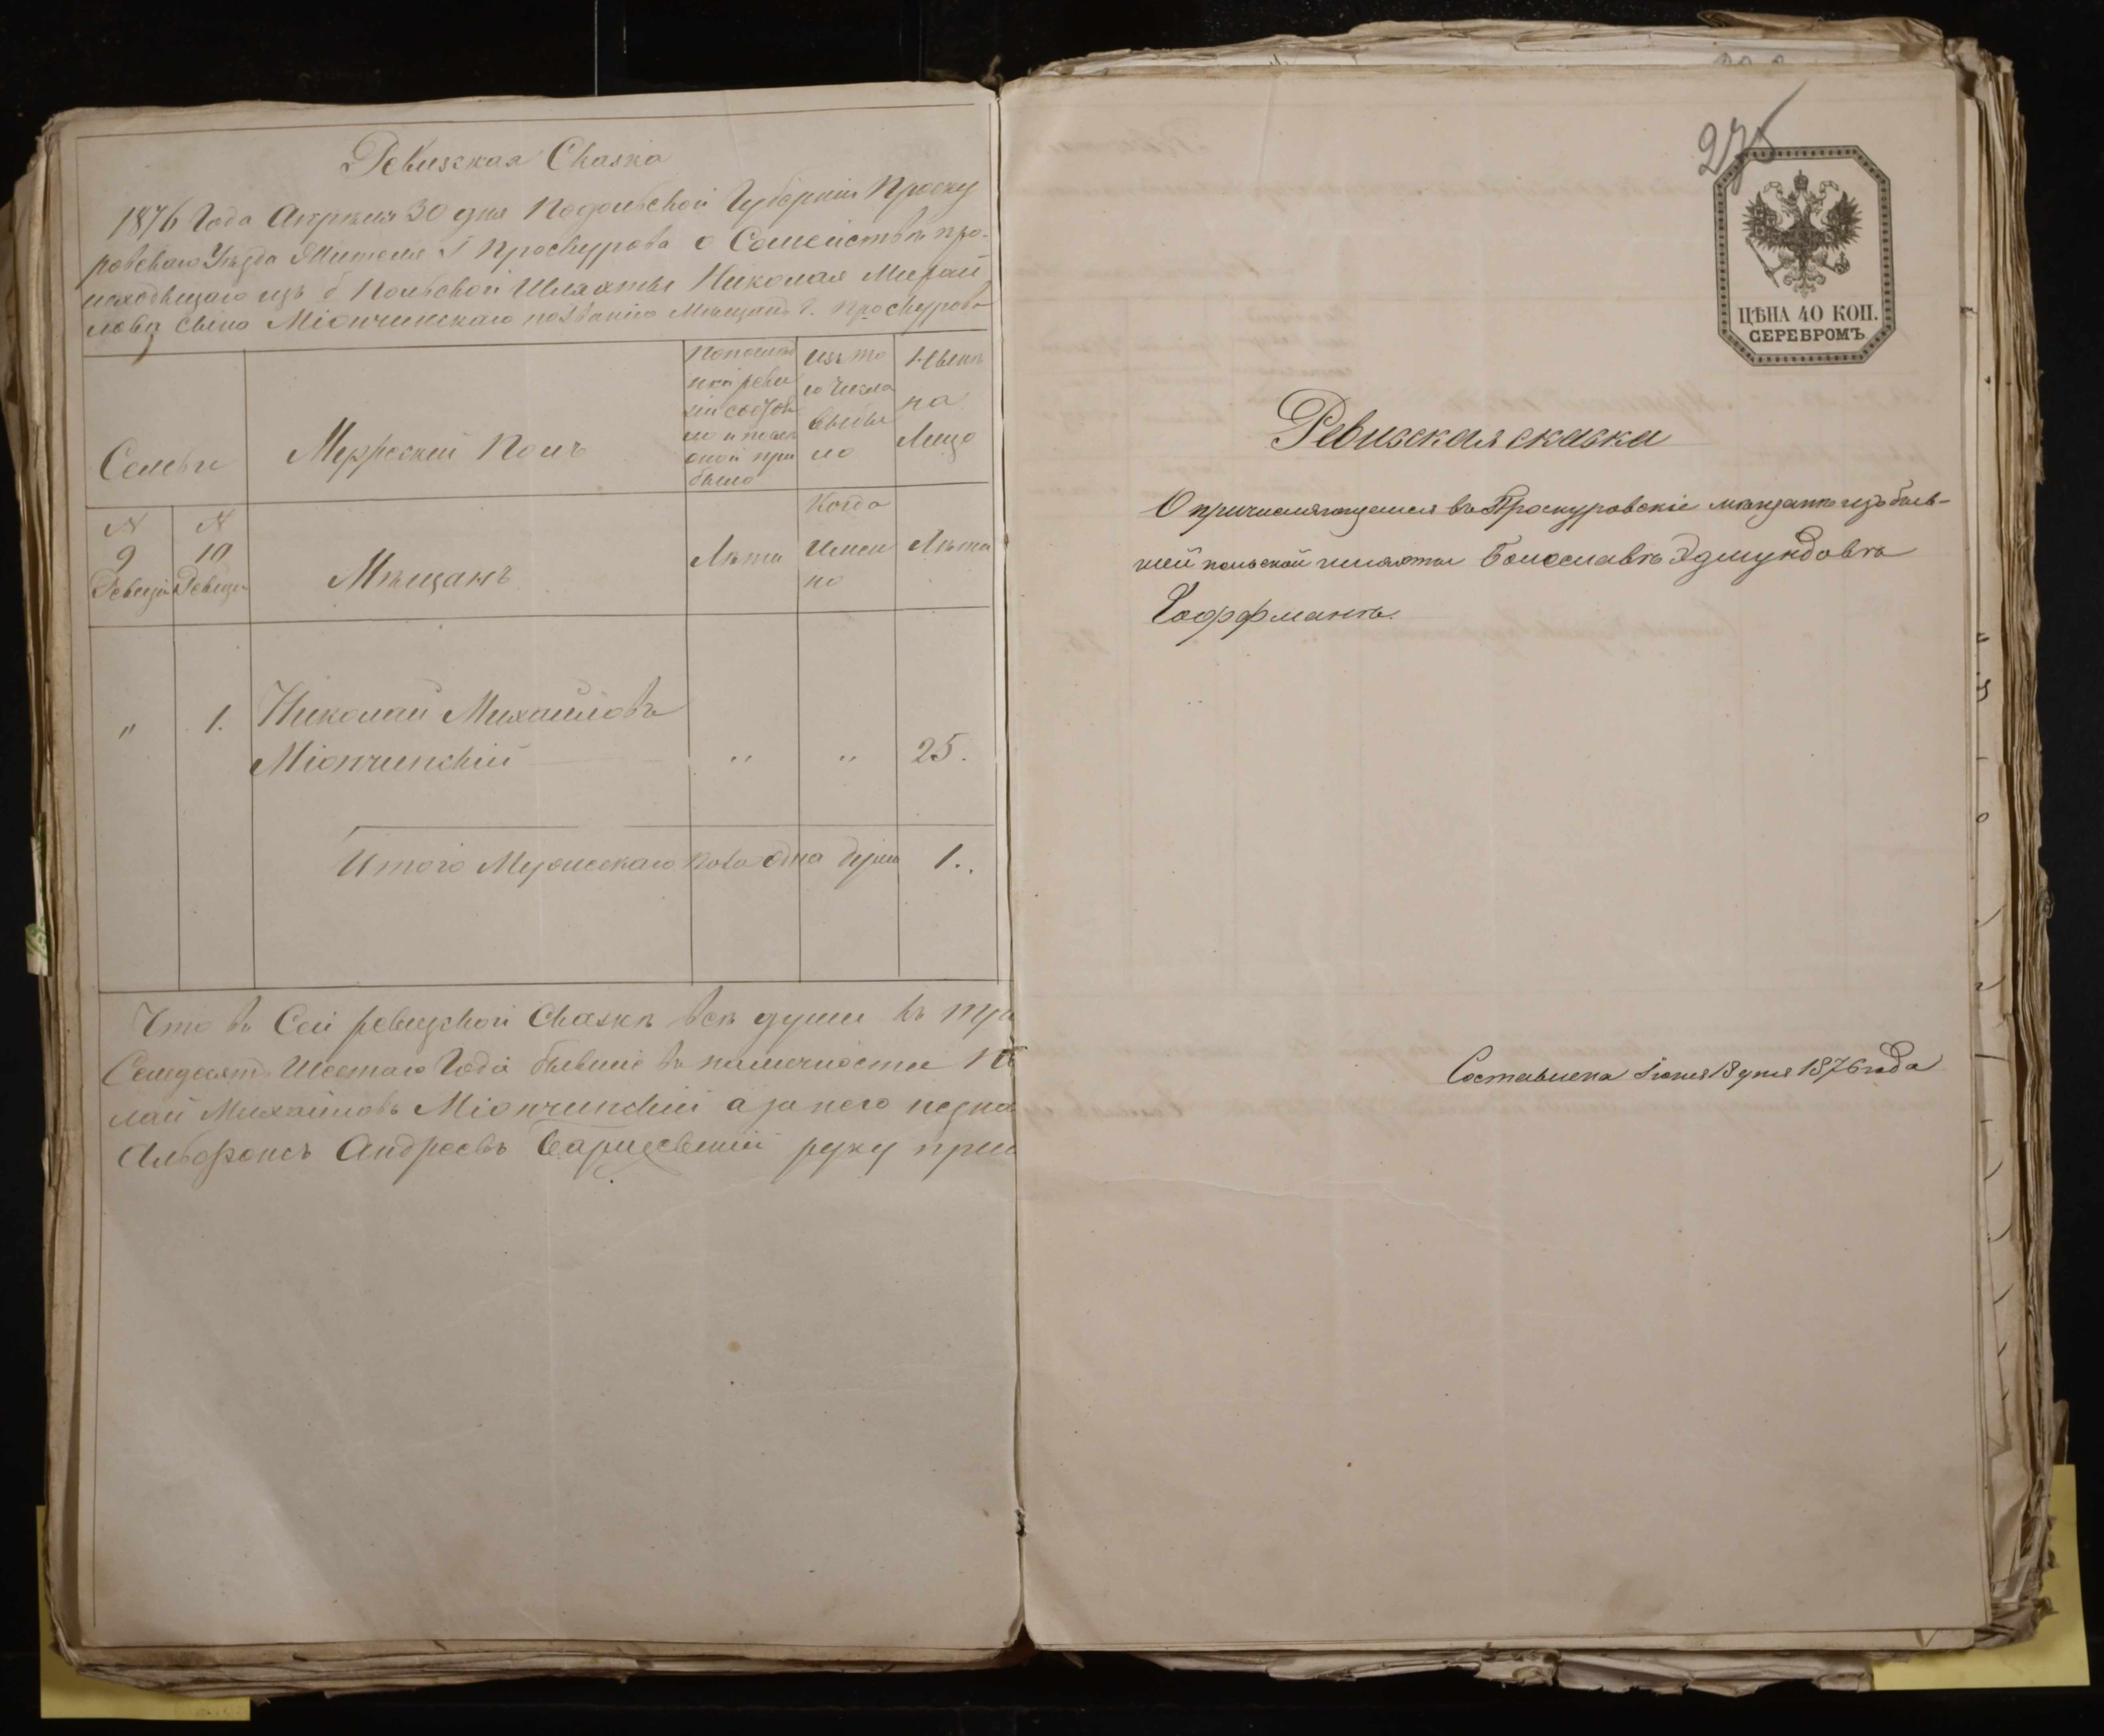 Ревизская Сказка
1876 Года Апреля 30 дня Подольской Губерніи Проску
ровскаго Уѣзда Жителя Г Проскурова о Семействѣ про-
исходящаго изъ б Польской Шляхты Николая Михай
лова Сына Міончинскаго Мѣщанъ Г. Проскурова
Семьи
Мужескій Полъ
По послѣд
ней реви
зіи состоя
ло и послѣ
оной при
было
Изъ то
го числа
выбы
ло
Нынѣ
на
Лицо
N
9
Ревизіи
N
10
Ревизіи
Мѣщанъ
Лѣта
Когда
Имен
но
Лѣта
" 1. Николай Михайловъ
Міончинскій " " 25.
Итого Мужескаго Пола Одна душа 1.
Что въ Сей ревизской Сказкѣ всѣ души къ
Семдесятъ Шестаго Года бывшіе въ наличности
лай Михайловъ Міончинскій а за него
Альфонсъ Андреевъ руку при
275
ЦѢНА 40 КОП.
СЕРЕБРОМЪ
Ревизская сказка
О причисляющемся въ Проскуровскіе мѣщане изъ быв-
шей польской шляхты Болеславѣ Эдмундовѣ
Гоффманѣ.
Составлена Іюня 18 дня 1876 года